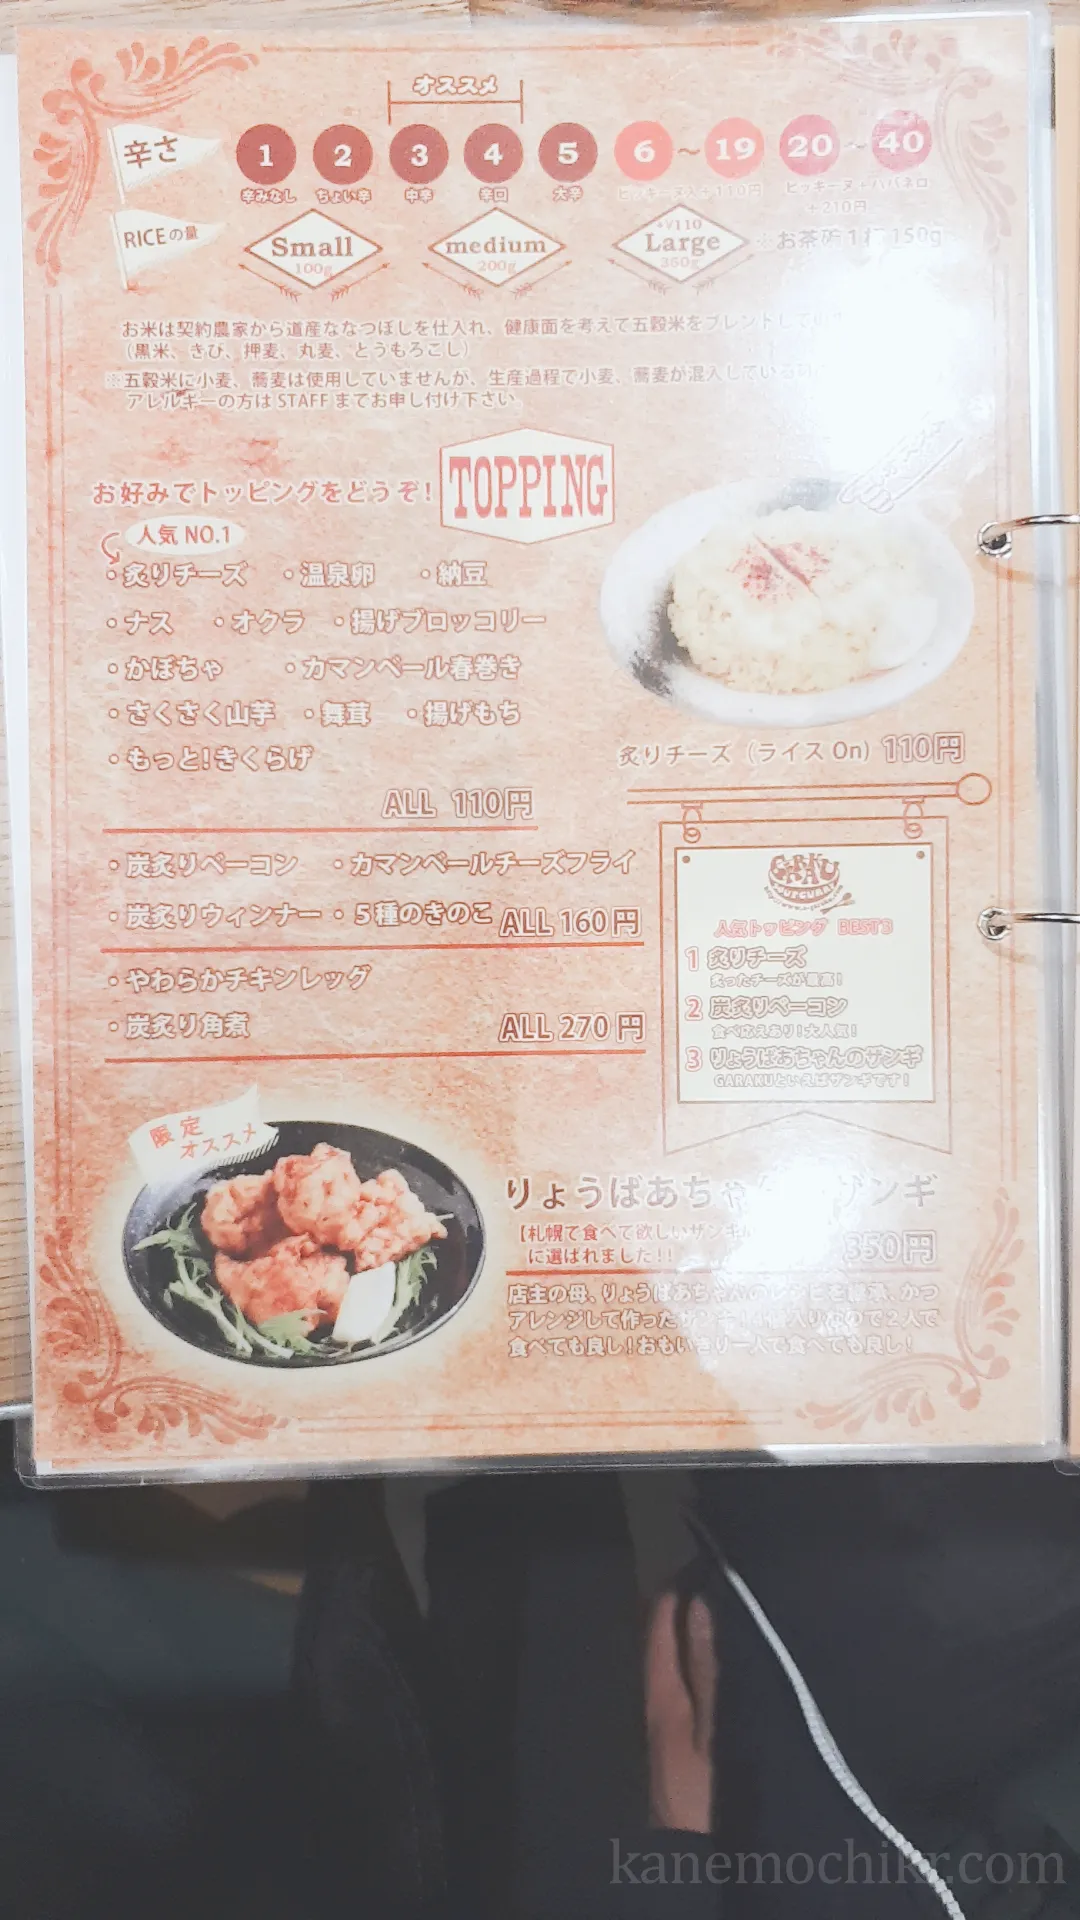 オススメ
辛さ 1 2 3 4 5 6 ～ 19 20 ～ 40
辛みなし ちょい辛 中辛 辛口 大辛 ピッキーヌ入+110円 ピッキーヌ+ハバネロ
+210円
RICEの量 Small 100g medium 200g +¥110 Large 360g ※お茶碗1杯150g
お米は契約農家から道産ななつぼしを仕入れ、健康面を考えて五穀米をブレンドして
（黒米、きび、押麦、丸麦、とうもろこし）
※五穀米に小麦、蕎麦は使用していませんが、生産過程で小麦、蕎麦が混入している
アレルギーの方は STAFF までお申し付け下さい。
お好みでトッピングをどうぞ！ TOPPING
人気 NO.1
・炙りチーズ ・温泉卵 ・納豆
・ナス ・オクラ ・揚げブロッコリー
・かぼちゃ ・カマンベール春巻き
・さくさく山芋 ・舞茸 ・揚げもち
・もっと!きくらげ
ALL 110円
炙りチーズ（ライス On）110円
・炭炙りベーコン ・カマンベールチーズフライ
・炭炙りウィンナー ・５種のきのこ ALL 160円
・やわらかチキンレッグ
・炭炙り角煮 ALL 270 円
GARAKU
SOUPCURRY
人気トッピング BEST3
1 炙りチーズ
炙ったチーズが最高！
2 炭炙りベーコン
食べ応えあり！大人気！
3 りょうばあちゃんのザンギ
GARAKUといえばザンギです！
限定
オススメ
りょうばあちゃ ザンギ
【札幌で食べて欲しいザンギ
に選ばれました!! 350円
店主の母、りょうばあちゃんのレシピを継承、かつ
アレンジして作ったザンギ！4個入りなので２人で
食べても良し！おもいきり一人で食べても良し！
kanemochikr.com